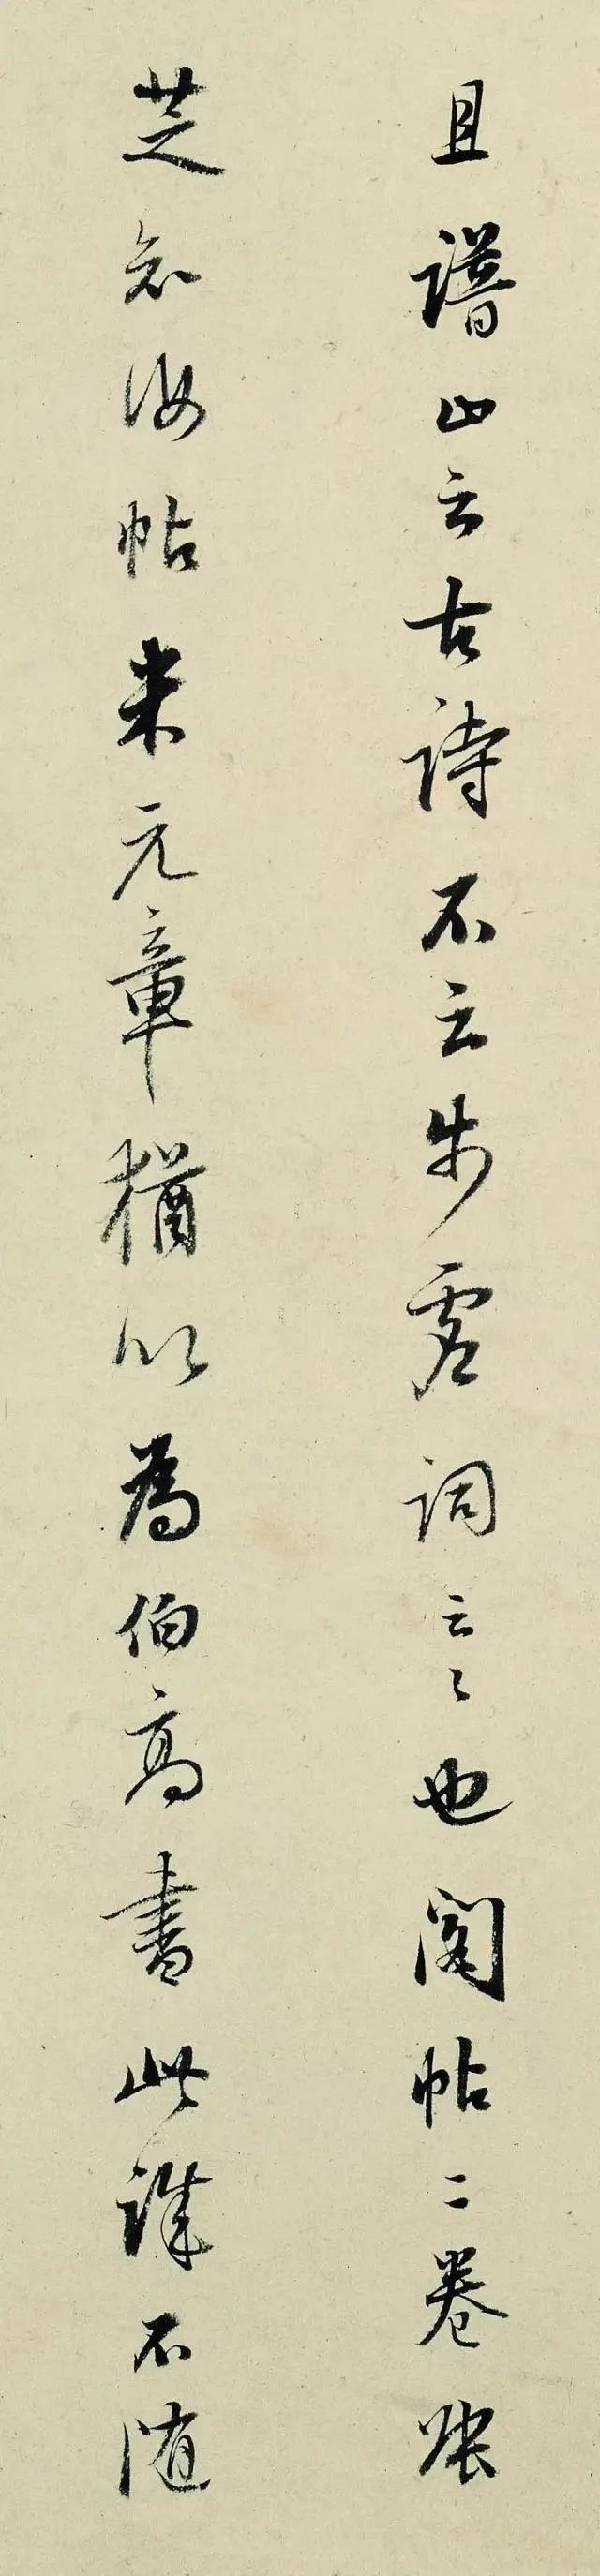 且譜止云古詩不云步虛詞云云也閣帖二卷張
芝知汝帖米元章猶以為伯高書此誰不随